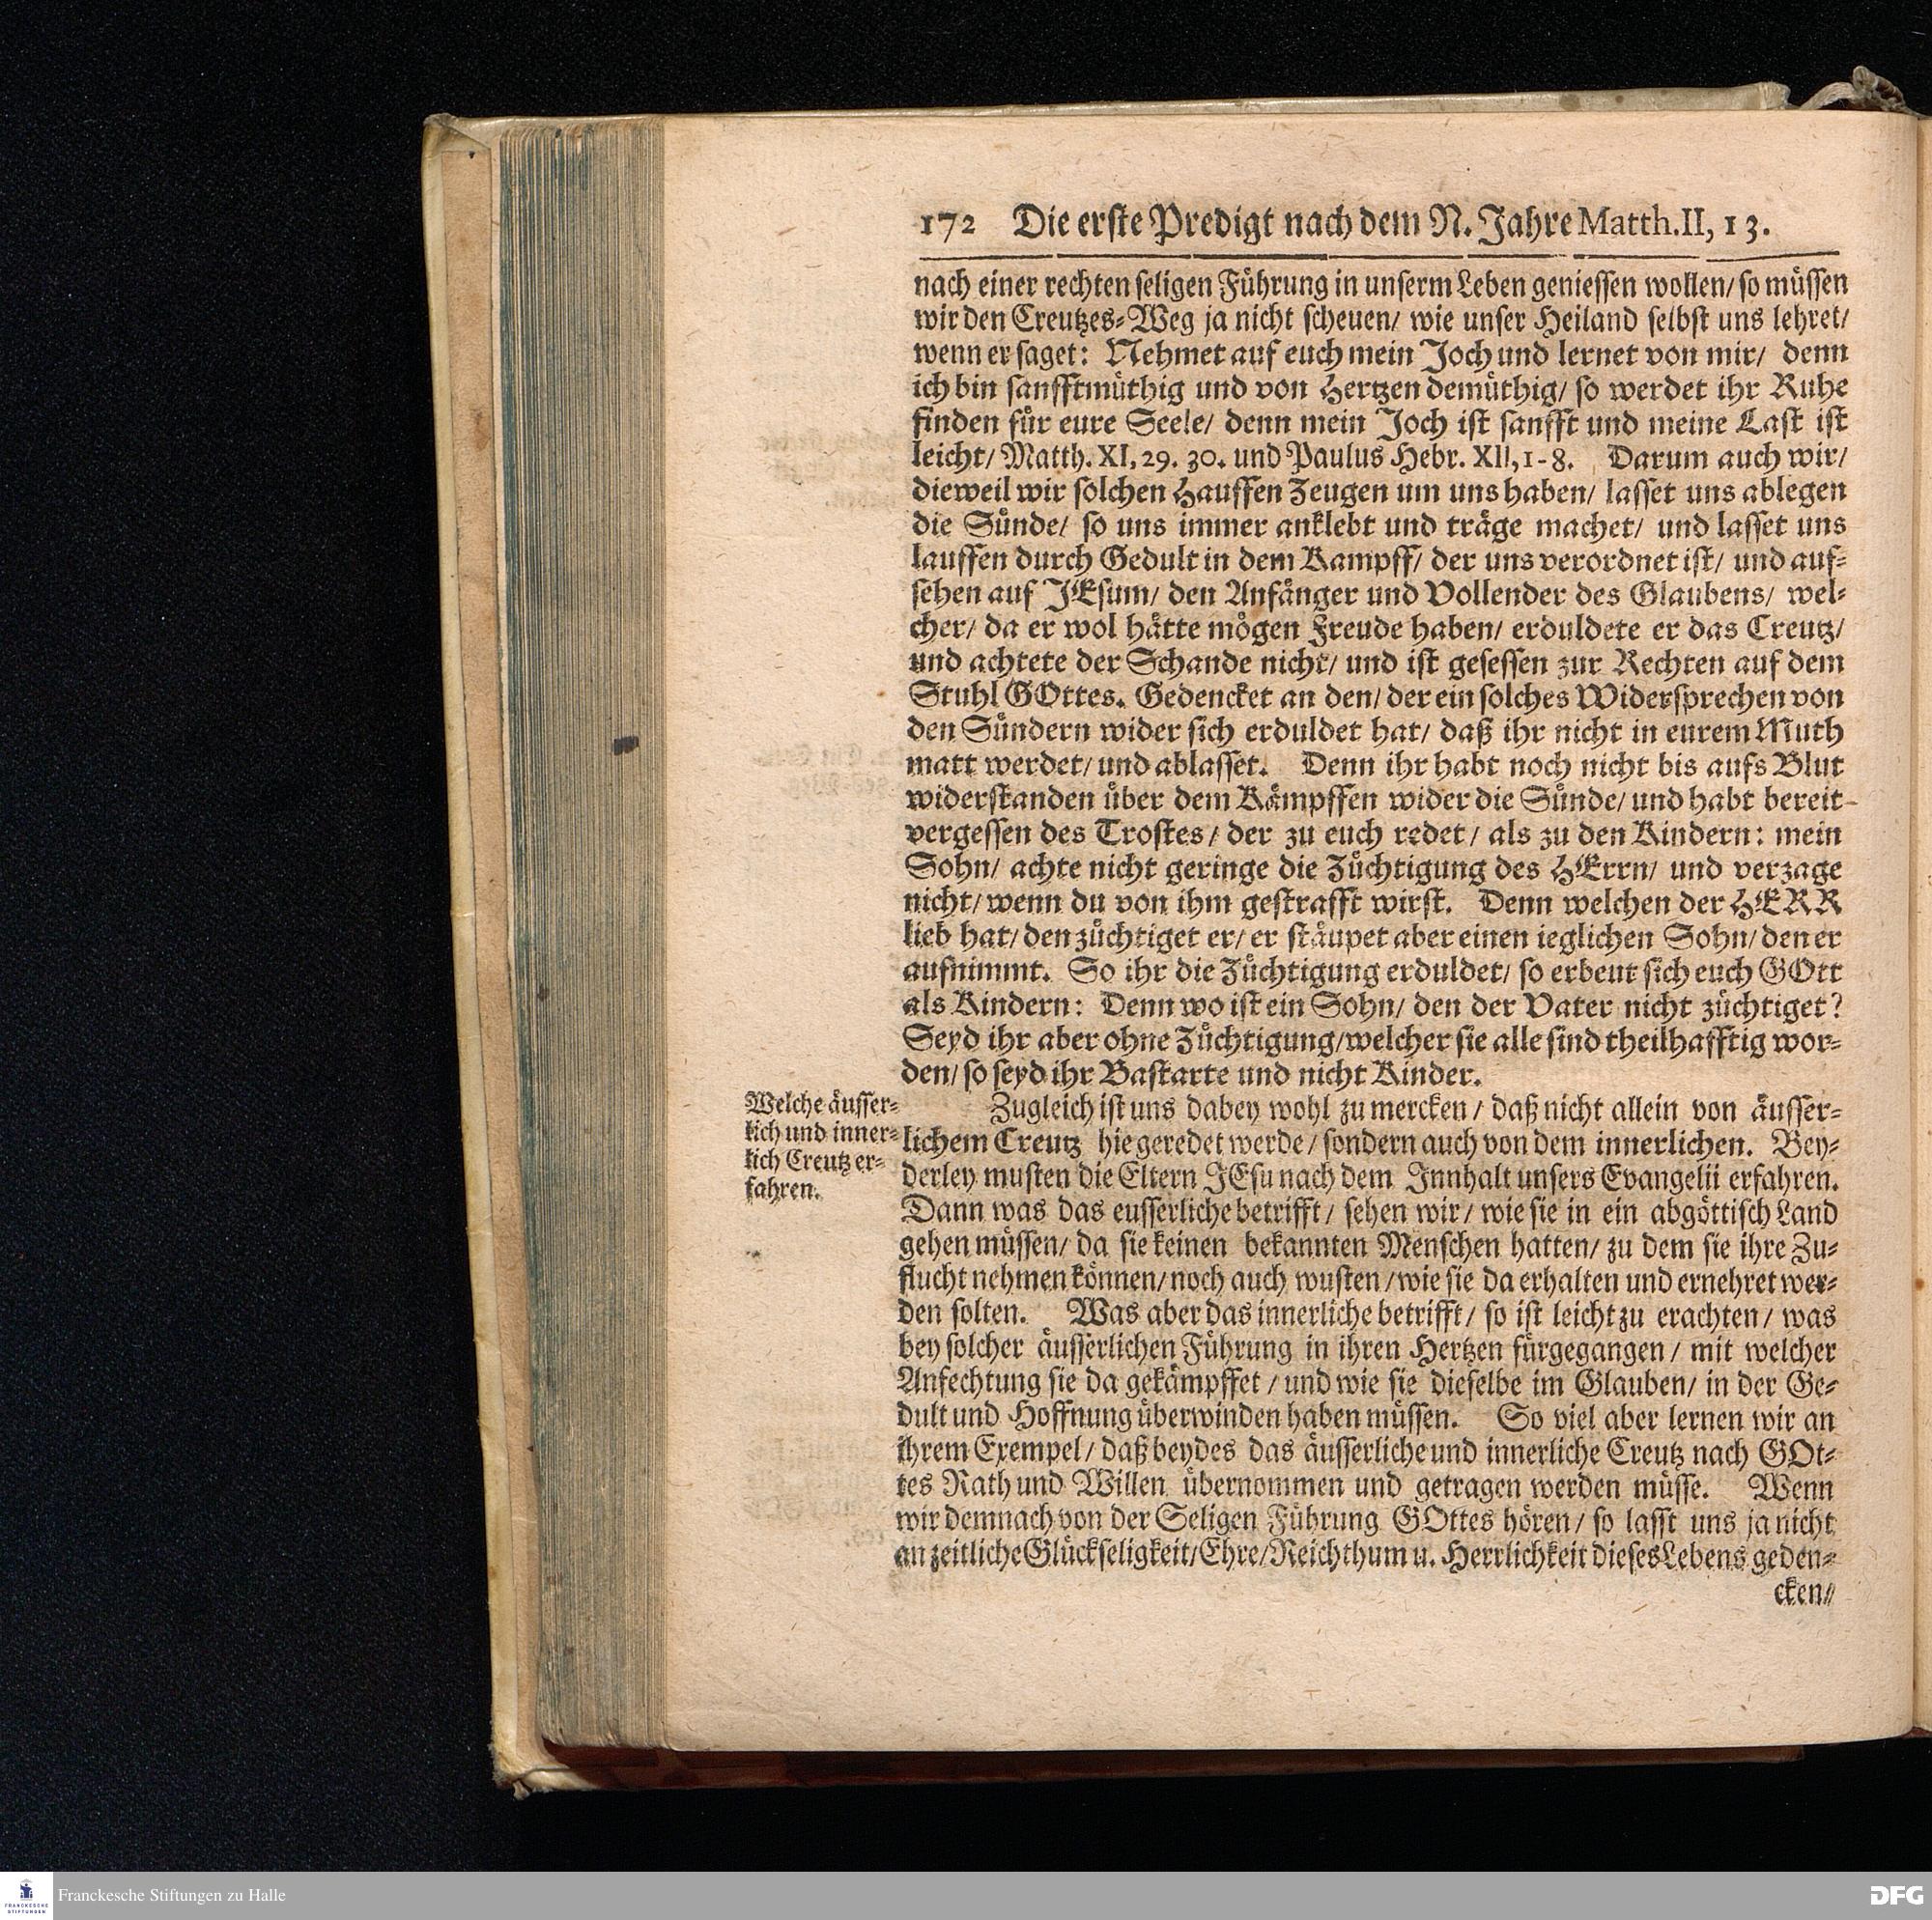 172 Die erste Predigt nach dem N. Jahre Matth. II, 13.
nach einer rechten seligen Führung in unserm Leben geniessen wollen/ so müssen
wir den Creutzes-Weg ja nicht scheuen/ wie unser Heiland selbst uns lehret/
wenn er saget: Nehmet auf euch mein Joch und lernet von mir/ denn
ich bin sanfftmüthig und von Hertzen demüthig/ so werdet ihr Ruhe
finden für eure Seele/ denn mein Joch ist sanfft und meine Last ist
leicht/ Matth. XI, 29. 30. und Paulus Hebr. XII, 1-8. Darum auch wir/
dieweil wir solchen Hauffen Zeugen um uns haben/ lasset uns ablegen
die Sünde/ so uns immer anklebt und träge machet/ und lasset uns
lauffen durch Gedult in dem Kampff/ der uns verordnet ist/ und auf-
sehen auf JEsum/ den Anfänger und Vollender des Glaubens/ wel-
cher/ da er wol hätte mögen Freude haben/ erduldete er das Creutz/
und achtete der Schande nicht/ und ist gesessen zur Rechten auf dem
Stuhl GOttes. Gedencket an den/ der ein solches Widersprechen von
den Sündern wider sich erduldet hat/ daß ihr nicht in eurem Muth
matt werdet/ und ablasset. Denn ihr habt noch nicht bis aufs Blut
widerstanden über dem Kämpffen wider die Sünde/ und habt bereit
vergessen des Trostes/ der zu euch redet/ als zu den Kindern: mein
Sohn/ achte nicht geringe die Züchtigung des HErrn/ und verzage
nicht/ wenn du von ihm gestrafft wirst. Denn welchen der HERR
lieb hat/ den züchtiget er/ er stäupet aber einen ieglichen Sohn/ den er
aufnimmt. So ihr die Züchtigung erduldet/ so erbeut sich euch GOtt
als Kindern: Denn wo ist ein Sohn/ den der Vater nicht züchtiget?
Seyd ihr aber ohne Züchtigung/ welcher sie alle sind theilhafftig wor-
den/ so seyd ihr Bastarte und nicht Kinder.
Welche äusser-
lich und inner-
lich Creutz er-
fahren.
Zugleich ist uns dabey wohl zu mercken/ daß nicht allein von äusser-
lichem Creutz hie geredet werde/ sondern auch von dem innerlichen. Bey-
derley musten die Eltern JEsu nach dem Innhalt unsers Evangelii erfahren.
Dann was das eusserliche betrifft/ sehen wir/ wie sie in ein abgöttisch Land
gehen müssen/ da sie keinen bekannten Menschen hatten/ zu dem sie ihre Zu-
flucht nehmen können/ noch auch wusten/ wie sie da erhalten und ernehret wer-
den solten. Was aber das innerliche betrifft/ so ist leicht zu erachten/ was
bey solcher äusserlichen Führung in ihren Hertzen fürgegangen/ mit welcher
Anfechtung sie da gekämpffet/ und wie sie dieselbe im Glauben/ in der Ge-
dult und Hoffnung überwinden haben müssen. So viel aber lernen wir an
ihrem Exempel/ daß beydes das äusserliche und innerliche Creutz nach GOt-
tes Rath und Willen übernommen und getragen werden müsse. Wenn
wir demnach von der Seligen Führung GOttes hören/ so lasst uns ja nicht
an zeitliche Glückseligkeit/ Ehre/ Reichthum u. Herrlichkeit dieses Lebens geden-
cken/
Franckesche Stiftungen zu Halle
FRANCKESCHE
STIFTUNGEN
DFG